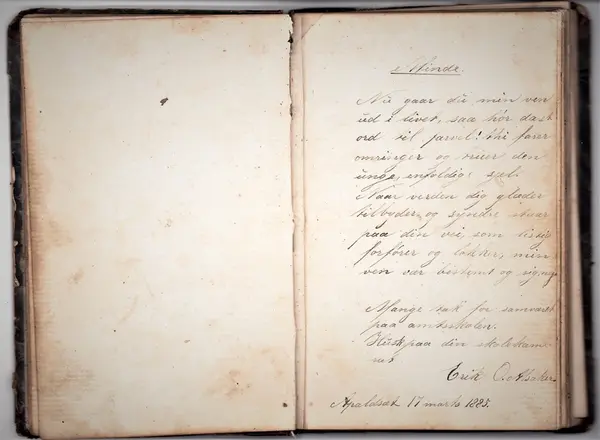 Minde.
Nu gaar du min ven
ud i livet, saa hør da et
ord til farvel! thi farer
omringer og truer den
unge, enfoldige sæl.
Naar verden dig glæder
tilbyder og syndre
paa din vei, som listig
forfører og lokker, min
ven vær bestemt og sig nei
Mange tak for samværet
paa amtsskolen.
Husk paa din skolekam-
rat
Erik
17 marts 1885.